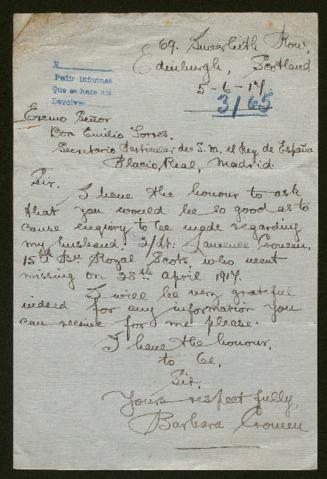 69. Inverleith Row.
Edinburgh, Scotland
5-6-17
R
Pedir Informes
Que se hace así
Devolver
3/65
Excmo Señor
Don Emilio Torres.
Secretario Particular de S. M. el Rey de España
Placio, Real, Madrid.
Sir.
I have the honour to ask
that you would be so good as to
cause enquiry to be made regarding
my husband. 2/Lt. Laurence
15th Bn Royal Scots, who went
missing on 28th April 1917.
I will be very grateful
indeed for any information you
can receive for me please.
I have the honour.
to be,
Sir.
Yours respectfully,
Barbara